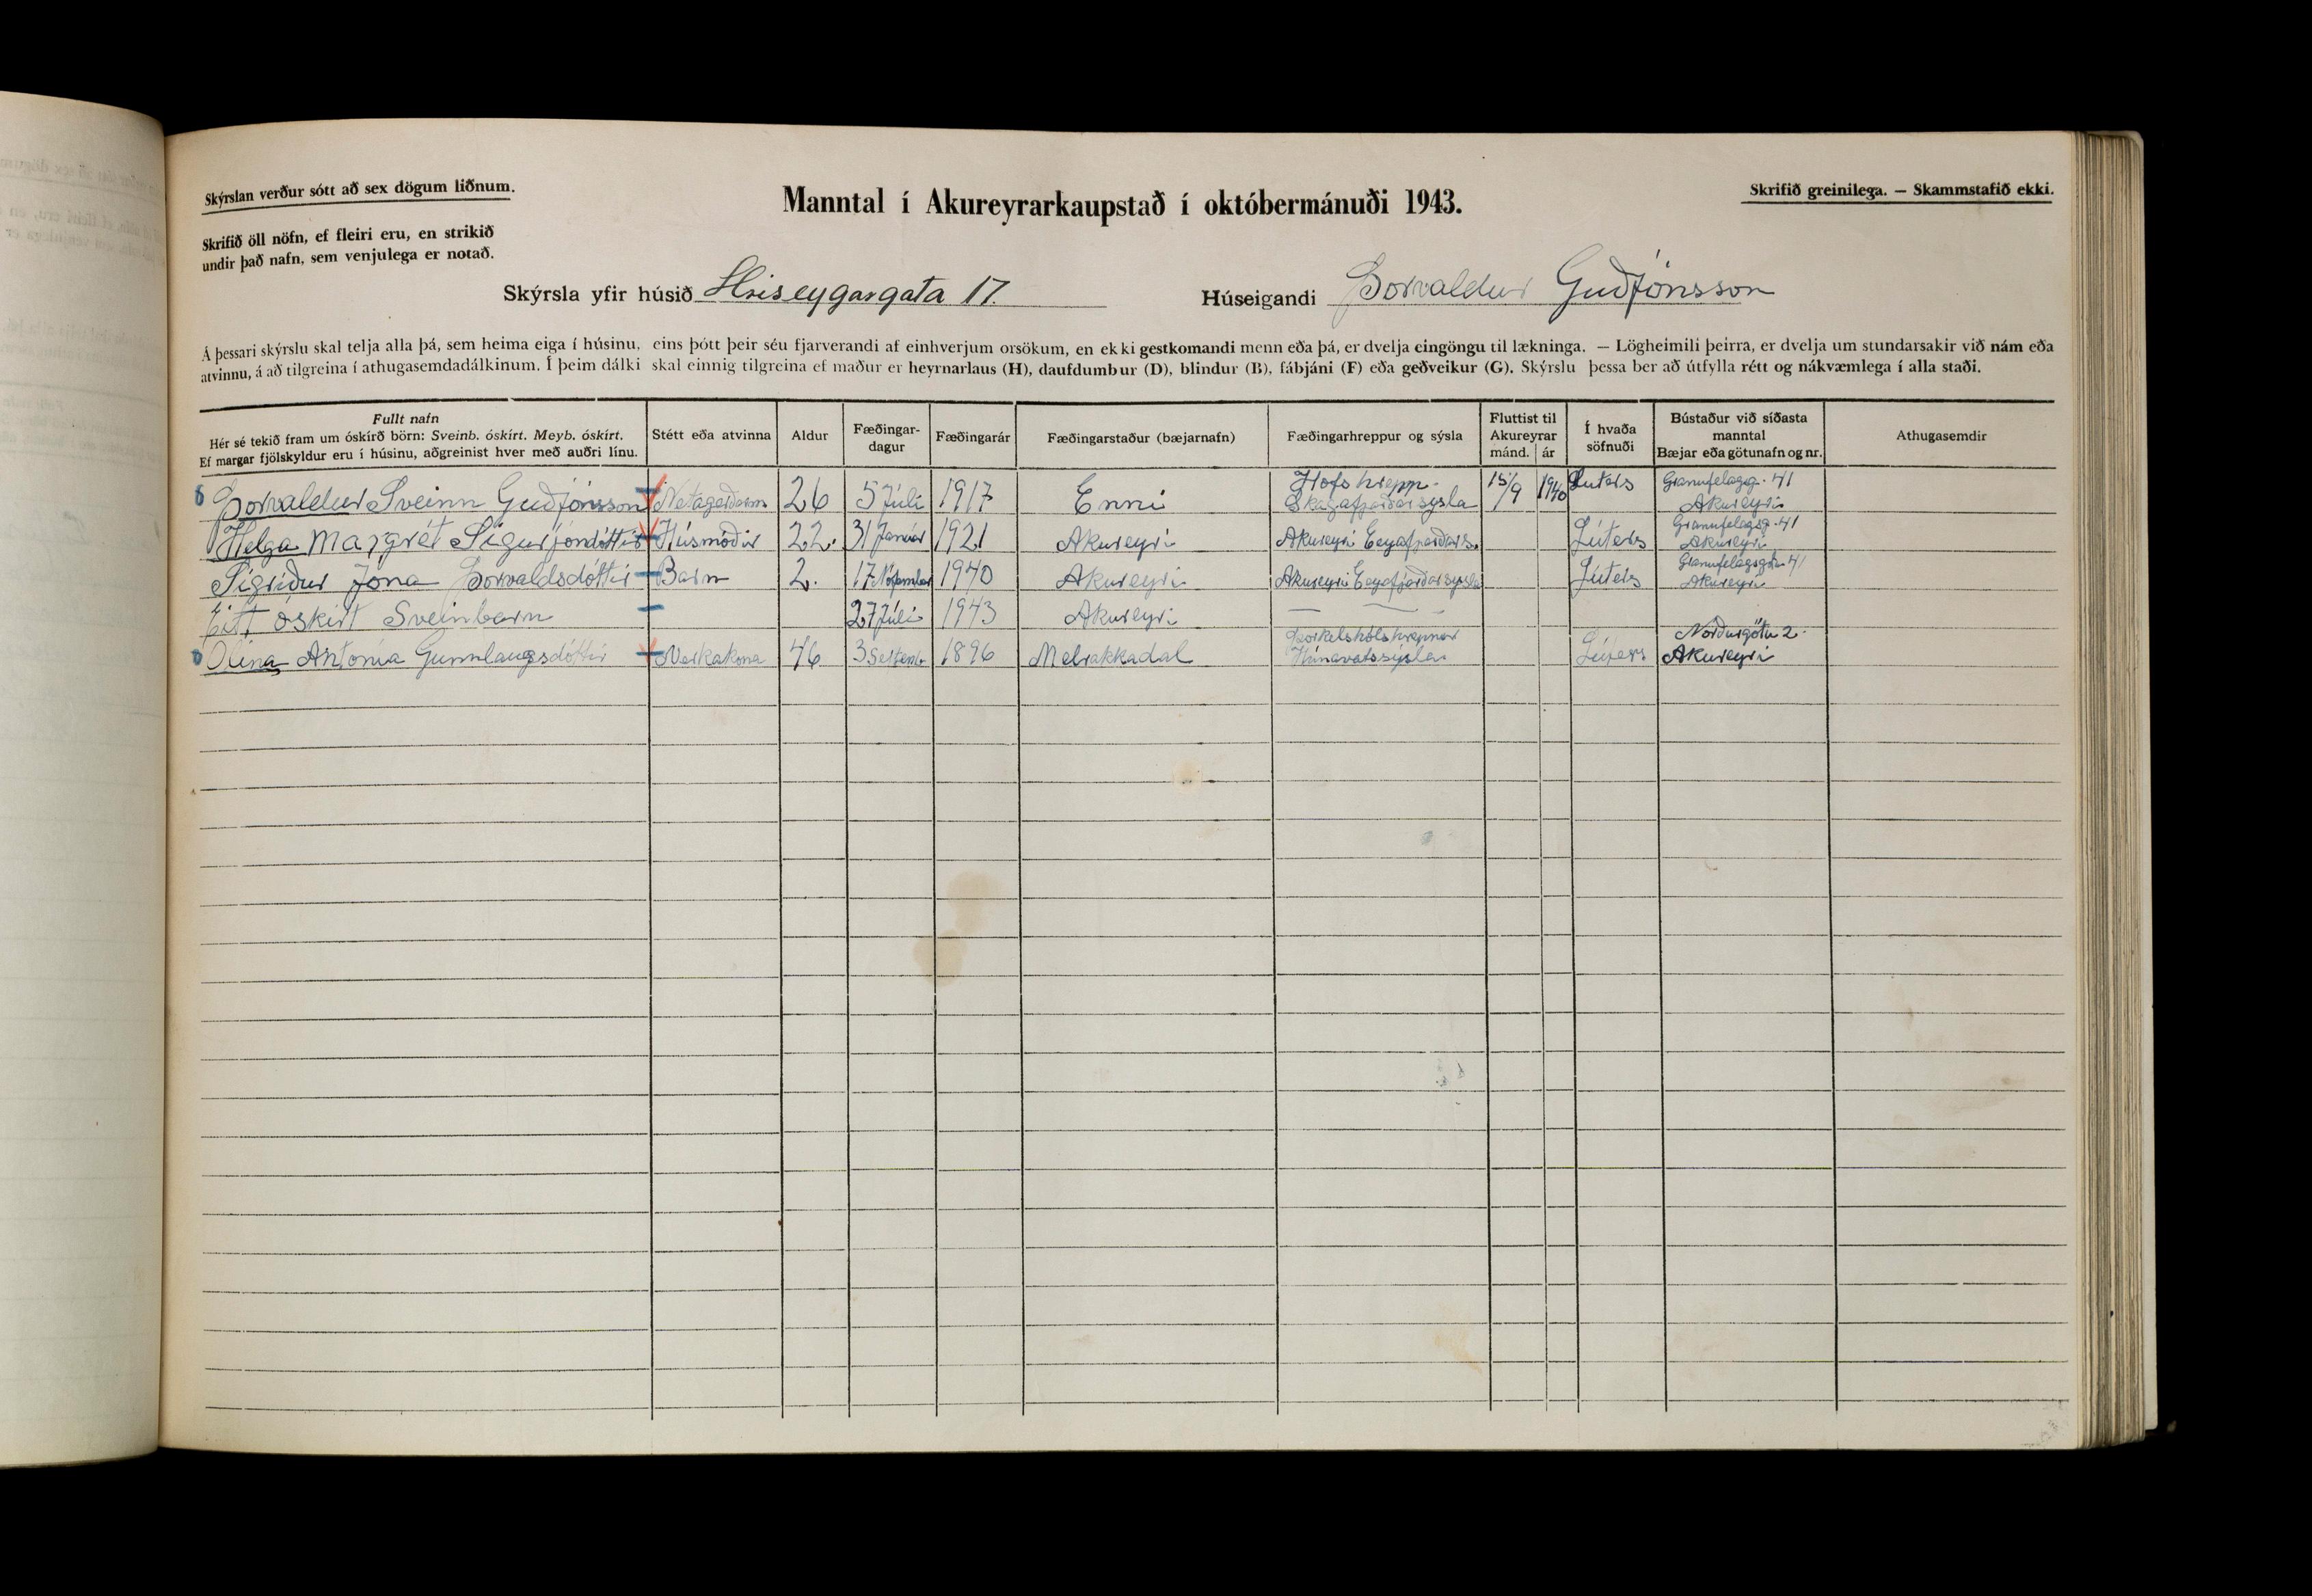 Skýrslan verður sótt að sex dögum liðnum.
Manntal í Akureyrarkaupstað í októbermánuði 1943.
Skrifið greinilega. — Skammstafið ekki.
Skrifið öll nöfn, ef fleiri eru, en strikið
undir það nafn, sem venjulega er notað.
Skýrsla yfir húsið Hríseygargata 17. Húseigandi Þorvaldur Guðjónsson
Á þessari skýrslu skal telja alla þá, sem heima eiga í húsinu, eins þótt þeir séu fjarverandi af einhverjum orsökum, en ekki gestkomandi menn eða þá, er dvelja eingöngu til lækninga. — Lögheimili þeirra, er dvelja um stundarsakir við nám eða
atvinnu, á að tilgreina í athugasemdadálkinum. Í þeim dálki skal einnig tilgreina ef maður er heyrnarlaus (H), daufdumbur (D), blindur (B), fábjáni (F) eða geðveikur (G). Skýrslu þessa ber að útfylla rétt og nákvæmlega í alla staði.
Fullt nafn
Hér sé tekið fram um óskírð börn: Sveinb. óskírt. Meyb. óskírt.
Ef margar fjölskyldur eru í húsinu, aðgreinist hver með auðri línu.
Stétt eða atvinna
Aldur
Fæðingar-
dagur
Fæðingarár
Fæðingarstaður (bæjarnafn)
Fæðingarhreppur og sýsla
Fluttist til
Akureyrar
mánd. ár
Í hvaða
söfnuði
Bústaður við síðasta
manntal
Bæjar eða götunafn og nr.
Athugasemdir
Þorvaldur Sveinn Guðjónsson Netagerðarm 26 5 Júlí 1917 Enni Hofshrepp. Skagafjarðarsýsla 15/9 1940 Luters Granufelagsg. 41 Akureyri
Helga Margrét Sigurjóndóttir Húsmóðir 22. 31 Janúar 1921 Akureyri Akureyri Eeyafjarðars. Lúters Granufelagsg. 41 Akureyri
Sigríður Jóna Þorvaldsdóttir Barn 2. 17 Nófember 1940 Akureyri Akureyri Eeyafjarðarsysla Lúters Granufelagsgta 41 Akureyri
Eitt óskírt Sveinbarn 27 Júlí 1943 Akureyri
Ólína Antonía Gunnlaugsdóttir Verkakona 46 3 Septemb. 1896 Melrakkadal Þorkelshólshreppur Húnavatssýsla Lúters. Norðurgötu 2. Akureyri